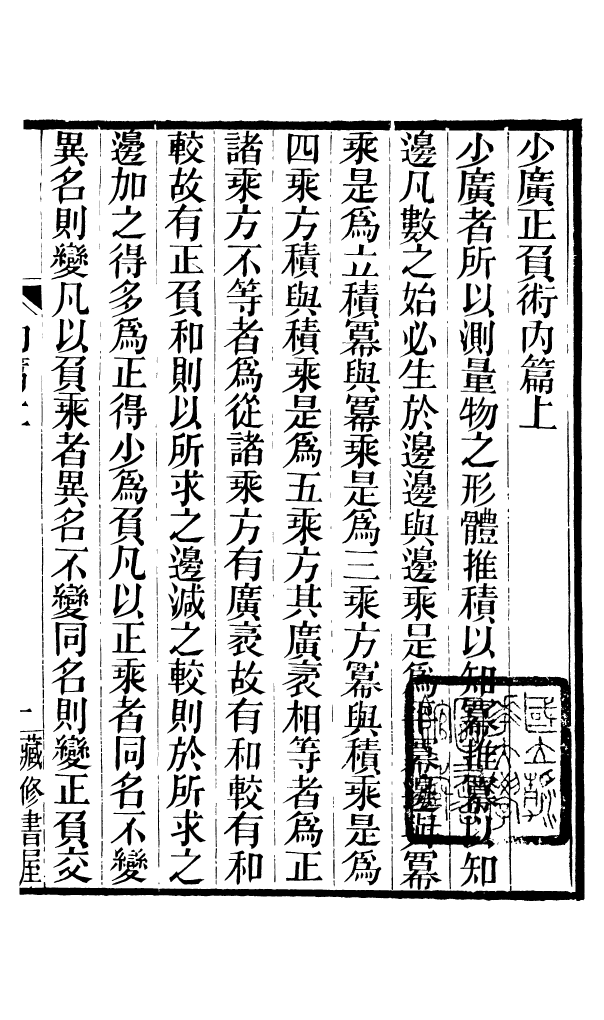 少廣正負術內篇上
少廣者所以測量物之形體推積以知冪推冪以知
邊凡數之始必生於邊邊與邊乘是爲冪邊與冪
乘是爲立積冪與冪乘是爲三乘方冪與積乘是爲
四乘方積與積乘是爲五乘方其廣袤相等者爲正
諸乘方不等者爲從諸乘方有廣袤故有和較有和
較故有正負和則以所求之邊減之較則於所求之
邊加之得多爲正得少爲負凡以正乘者同名不變
異名則變凡以負乘者異名不變同名則變正負交
內篇上
一
藏修書屋